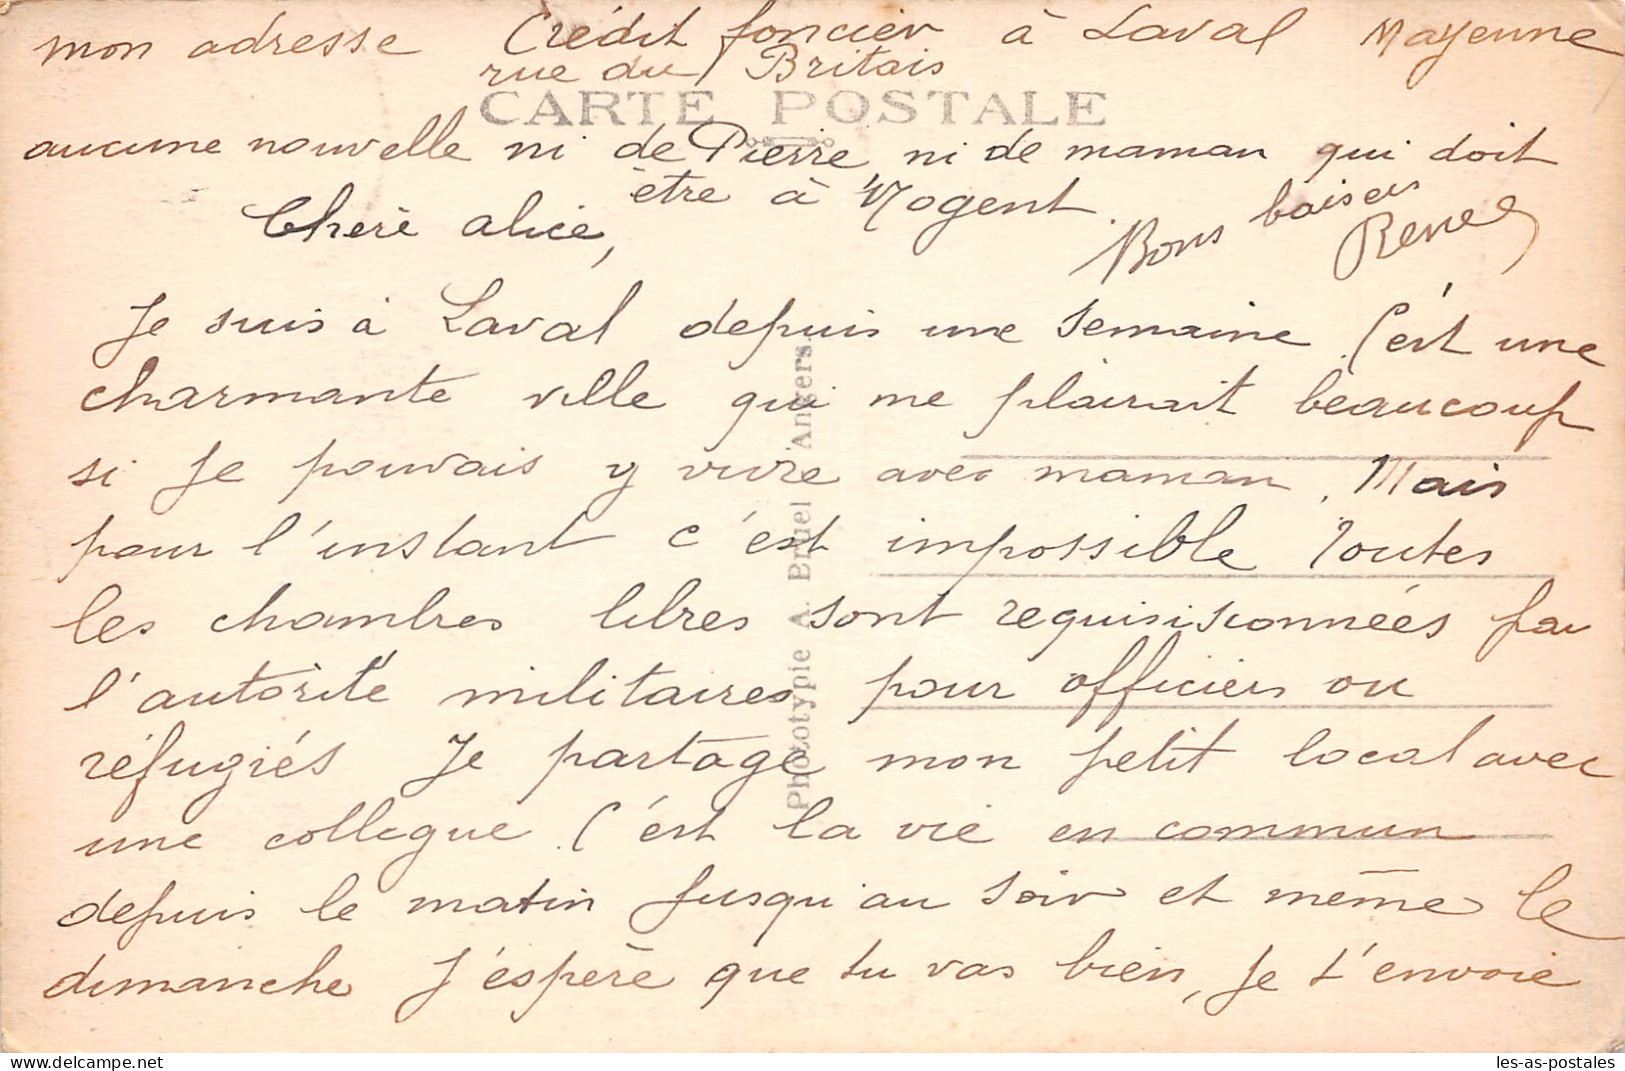 mon adresse Crédit foncier à Laval Mayenne
rue du Britais
CARTE POSTALE
aucune nouvelle ni de Pierre ni de maman qui doit
être à Nogent.
Bons baisers
Renee
Chère alice,
Je suis à Laval depuis une semaine C'est une
charmante ville qui me plairait beaucoup
si je pouvais y vivre avec maman. Mais
pour l'instant c'est impossible Toutes
les chambres libres sont requisisionnées par
l'autorité militaires pour officiers ou
réfugiés Je partage mon petit local avec
une collegue C'est la vie en commun
depuis le matin jusqu'au soir et même le
dimanche J'espère que tu vas bien, Je t'envoie
Phototypie A. Bruel Angers.
les-as-postales
delcampe.net